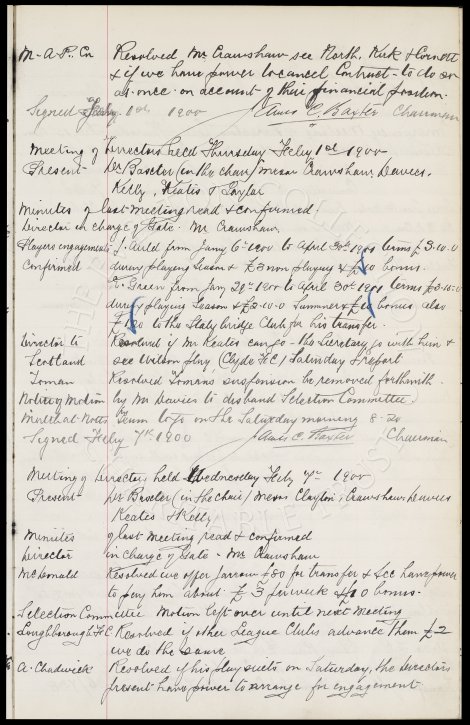 M-A-P. Co Resolved Mr Crawshaw see North, Kirk & Cornett
& if we have power to cancel Contract - to do so
at once - on account of their financial position.
Signed Feby 1st 1900 James C. Baxter Chairman
Meeting of Directors held Thursday Feby 1st 1900
Present - Dr Baxter (in the chair) Messrs Crawshaw, Davies,
Kelly, Keates & Taylor
Minutes of last meeting read & confirmed.
Director in charge of Gate. Mr Crawshaw.
Players engagements J. Auld from Jany 6th 1900 to April 30th 1901 terms £3-10-0
confirmed during playing season & £3 non playing & £50 bonus.
Green from Jany 20th 1900 to April 30th 1901 terms £3-10-0
during playing Season & £3-0-0 Summer & £10 bonus also
to the Stalybridge Club for his transfer.
Director to Resolved if Mr Keates can go - the Secretary go with him &
Scotland see Wilson play (Clyde F.C.) Saturday & report
Toman Resolved Toman's suspension be removed forthwith.
Notice of Motion by Mr Davies to disband Selection Committee.
Match at Notts Team to go on the Saturday morning 8-20
Signed Feby 7th 1900 James C. Baxter Chairman
Meeting of Directors held Wednesday Feby 7th 1900
Present - Dr Baxter (in the chair) Messrs Clayton, Crawshaw, Davies
Keates & Kelly
Minutes of last meeting read & confirmed
Director in charge of Gate - Mr Crawshaw
McDonald Resolved we offer Jarrow £80 for transfer & Sec have power
to pay him about £3 per week & £10 bonus.
Selection Committee Motion left over until next Meeting
Loughborough F.C Resolved if other League Clubs advance them £2
we do the same
A. Chadwick Resolved if his play suits on Saturday, the Directors
present have power to arrange for engagement.